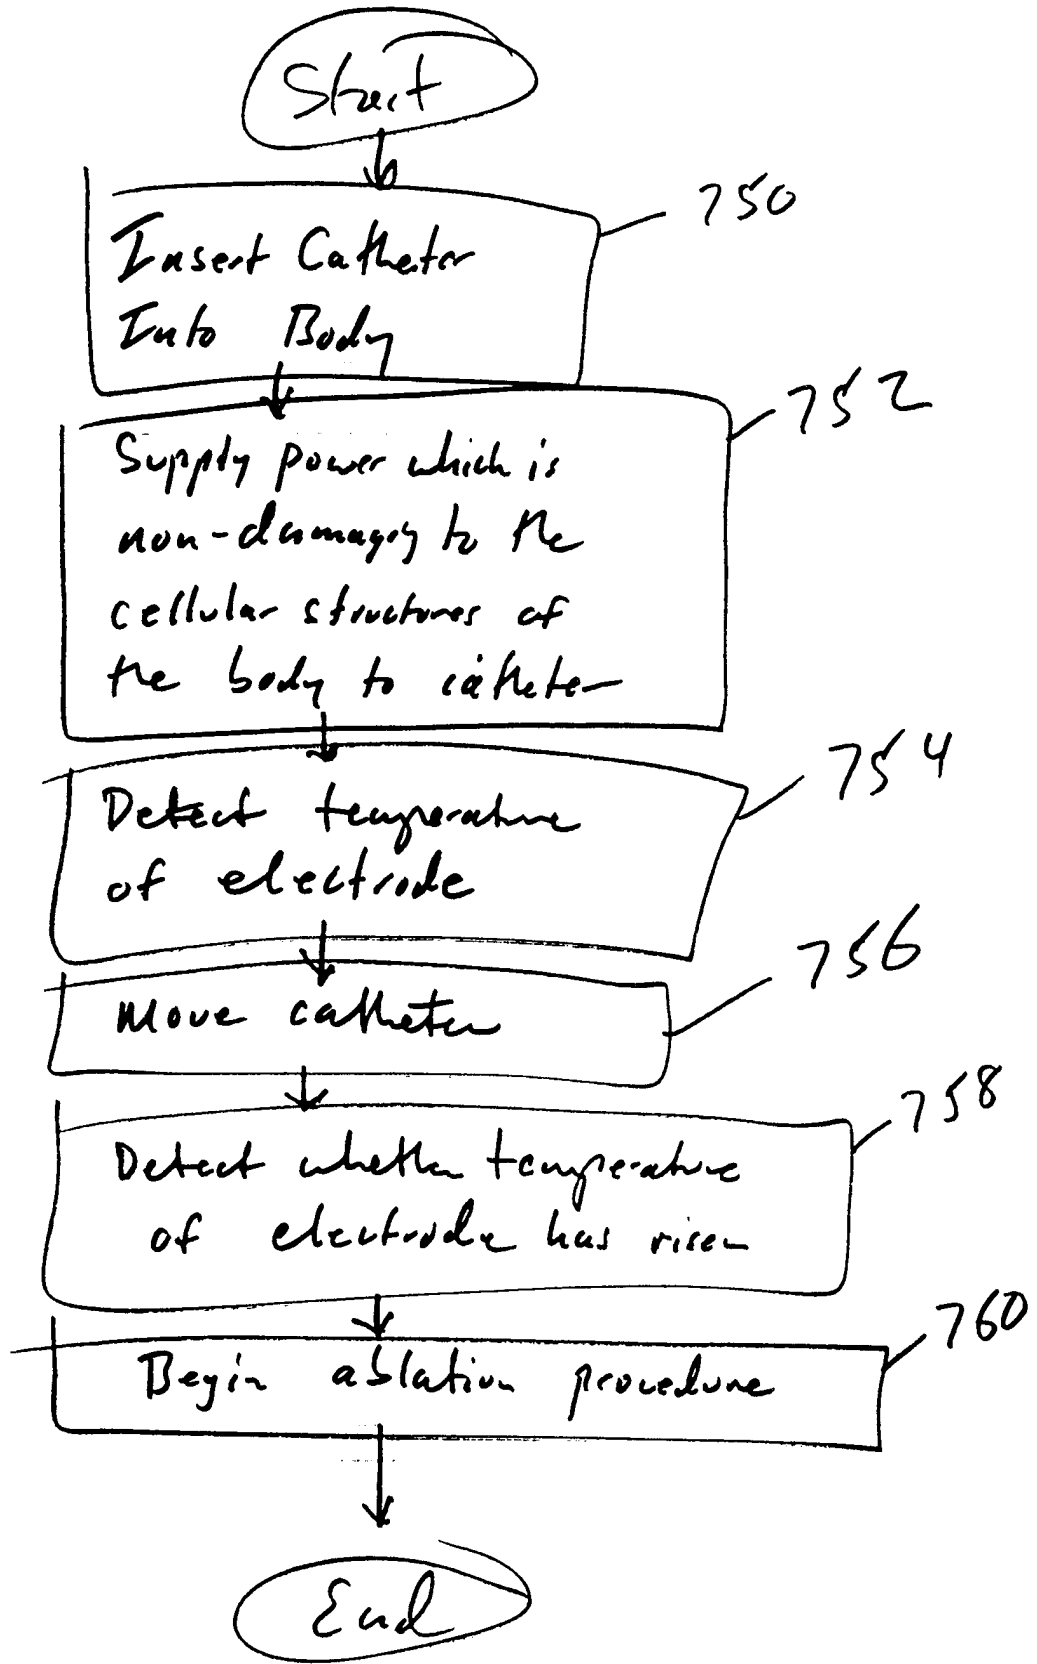 Start
750
Insert Catheter
Into Body
752
Supply power which is
non-damaging to the
cellular structures of
the body to catheter
754
Detect temperature
of electrode
756
Move catheter
758
Detect whether temperature
of electrode has risen
760
Begin ablation procedure
End